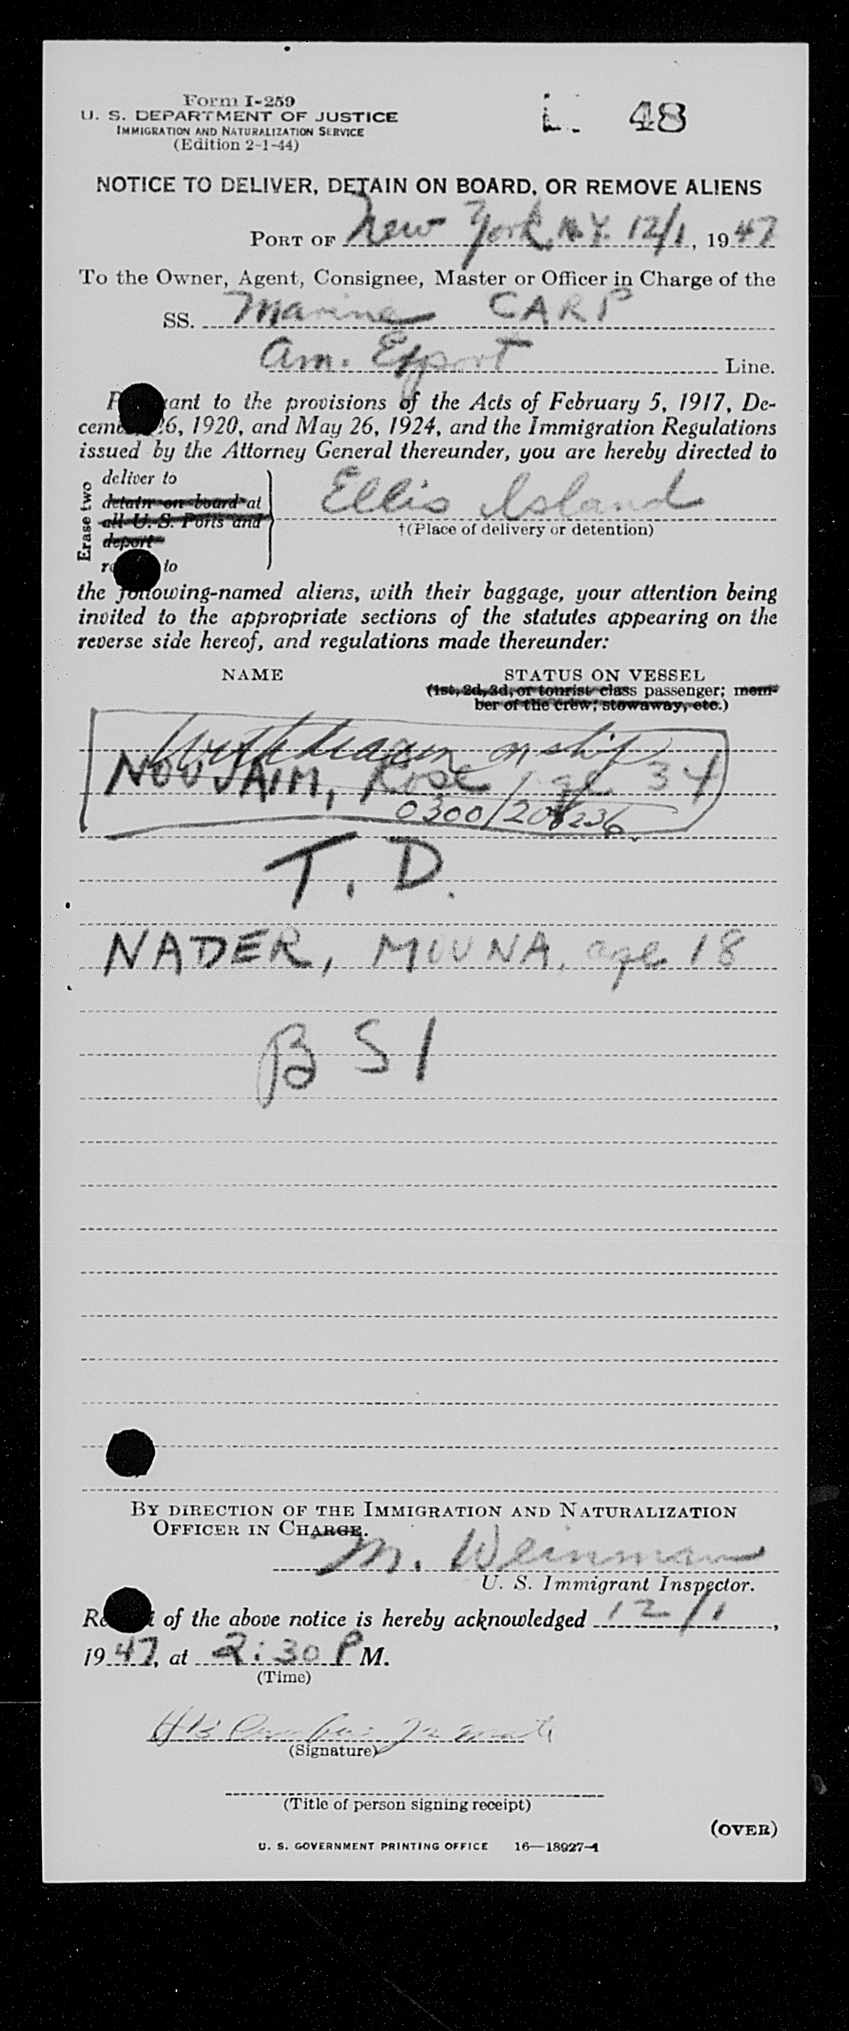 Form I-259
U. S. DEPARTMENT OF JUSTICE
IMMIGRATION AND NATURALIZATION SERVICE
(Edition 2-1-44)
L. 48
NOTICE TO DELIVER, DETAIN ON BOARD, OR REMOVE ALIENS
PORT OF New York, N.Y. 12/1, 1947
To the Owner, Agent, Consignee, Master or Officer in Charge of the
SS. Marine CARP
Am. Export Line.
to the provisions of the Acts of February 5, 1917, De-
26, 1920, and May 26, 1924, and the Immigration Regulations
issued by the Attorney General thereunder, you are hereby directed to
Erase two
deliver to
detain on board at
all U. S. Ports and
deport
to
Ellis Island
†(Place of delivery or detention)
the following-named aliens, with their baggage, your attention being
invited to the appropriate sections of the statutes appearing on the
reverse side hereof, and regulations made thereunder:
NAME STATUS ON VESSEL
(1st, 2d, 3d, or tourist class passenger; mem-
ber of the crew; stowaway, etc.)
on ship
NOUJAIM, Rose age 34
0300/
T. D.
NADER, MOUNA, age 18
B S I
BY DIRECTION OF THE IMMIGRATION AND NATURALIZATION
OFFICER IN CHARGE.
M. Weinman
U. S. Immigrant Inspector.
of the above notice is hereby acknowledged 12/1,
1947, at 2:30 P M.
(Time)
(Signature)
(Title of person signing receipt)
(OVER)
U. S. GOVERNMENT PRINTING OFFICE 16—18927-1